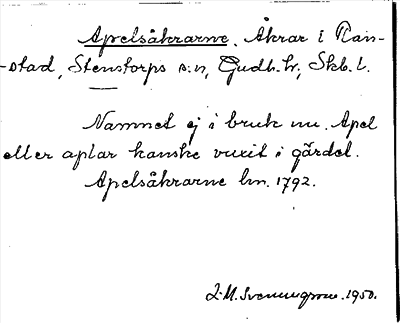 Apelsåkrarne. Åkrar i Ran-
-stad, Stenstorps s:n, Gudh. hr, Skb. l.
Namnet ej i bruk nu. Apel
eller aplar kanske vuxit i gärdet.
Apelsåkrarne lm. 1792.
1950.